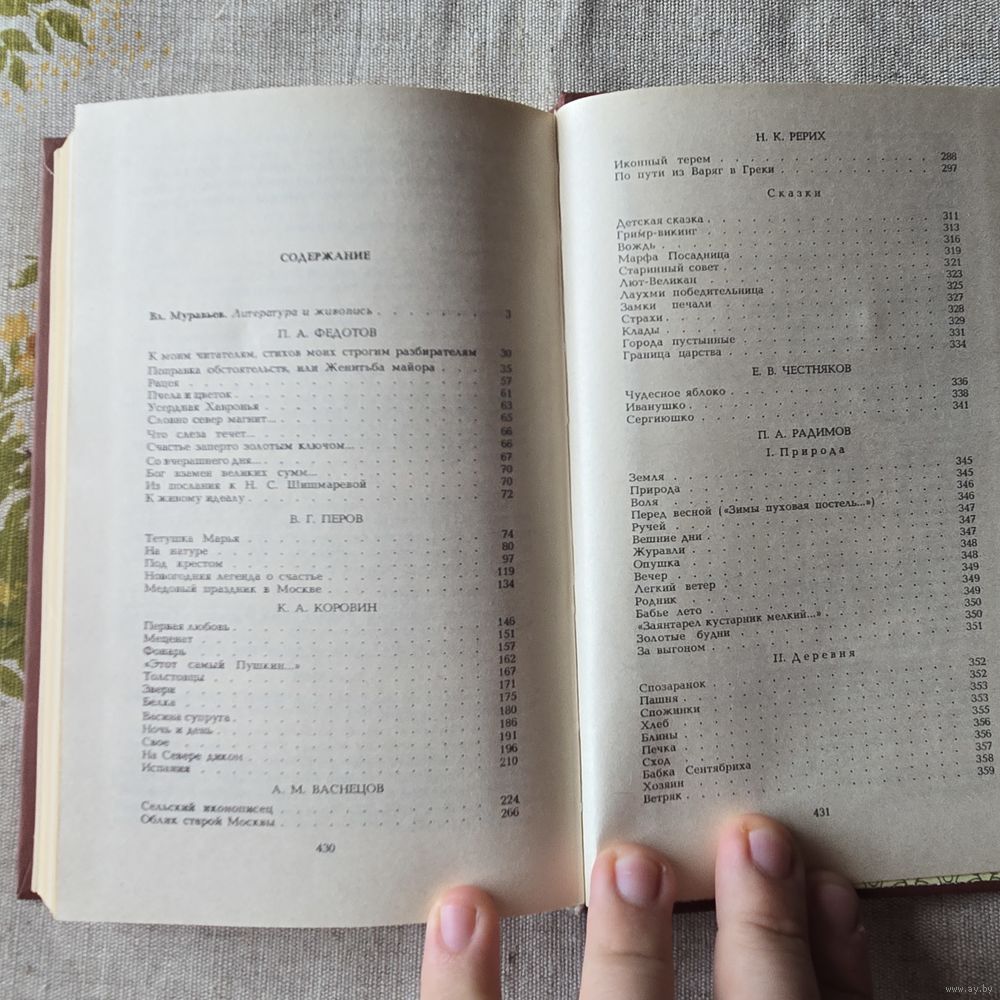 СОДЕРЖАНИЕ
Вл. Муравьев. Литература и живопись . . . 3
П. А. ФЕДОТОВ
К моим читателям, стихов моих строгим разбирателям 30
Поправка обстоятельств, или Женитьба майора 35
Рацея . . . 57
Пчела и цветок . . . 61
Усердная Хавронья . . . 63
Словно север магнит... . . . 65
Что слеза течет... . . . 66
Счастье заперто золотым ключом... . . . 66
Со вчерашнего дня... . . . 67
Бог взамен великих сумм... . . . 70
Из послания к Н. С. Шишмаревой . . . 70
К живому идеалу . . . 72
В. Г. ПЕРОВ
Тетушка Марья . . . 74
На натуре . . . 80
Под крестом . . . 97
Новогодняя легенда о счастье . . . 119
Медовый праздник в Москве . . . 134
К. А. КОРОВИН
Первая любовь . . . 146
Меценат . . . 151
Фонарь . . . 157
«Этот самый Пушкин...» . . . 162
Толстовцы . . . 167
Звери . . . 171
Белка . . . 175
Васина супруга . . . 180
Ночь и день . . . 186
Свое . . . 191
На Севере диком . . . 196
Испания . . . 210
А. М. ВАСНЕЦОВ
Сельский иконописец . . . 224
Облик старой Москвы . . . 266
430
Н. К. РЕРИХ
Иконный терем . . . 288
По пути из Варяг в Греки . . . 297
Сказки
Детская сказка . . . 311
Гримр-викинг . . . 313
Вождь . . . 316
Марфа Посадница . . . 319
Старинный совет . . . 321
Лют-Великан . . . 323
Лаухми победительница . . . 325
Замки печали . . . 327
Страхи . . . 328
Клады . . . 329
Города пустынные . . . 331
Граница царства . . . 334
Е. В. ЧЕСТНЯКОВ
Чудесное яблоко . . . 336
Иванушко . . . 338
Сергиюшко . . . 341
П. А. РАДИМОВ
I. Природа
Земля . . . 345
Природа . . . 345
Воля . . . 346
Перед весной («Зимы пуховая постель...») . . . 346
Ручей . . . 347
Вешние дни . . . 347
Журавли . . . 347
Опушка . . . 348
Вечер . . . 348
Легкий ветер . . . 349
Родник . . . 349
Бабье лето . . . 349
«Заянтарел кустарник мелкий...» . . . 350
Золотые будни . . . 350
За выгоном . . . 351
II. Деревня
Спозаранок . . . 352
Пашня . . . 352
Спожинки . . . 353
Хлеб . . . 353
Блины . . . 355
Печка . . . 356
Сход . . . 356
Бабка Сентябриха . . . 357
Хозяин . . . 358
Ветряк . . . 359
431
www.ay.by